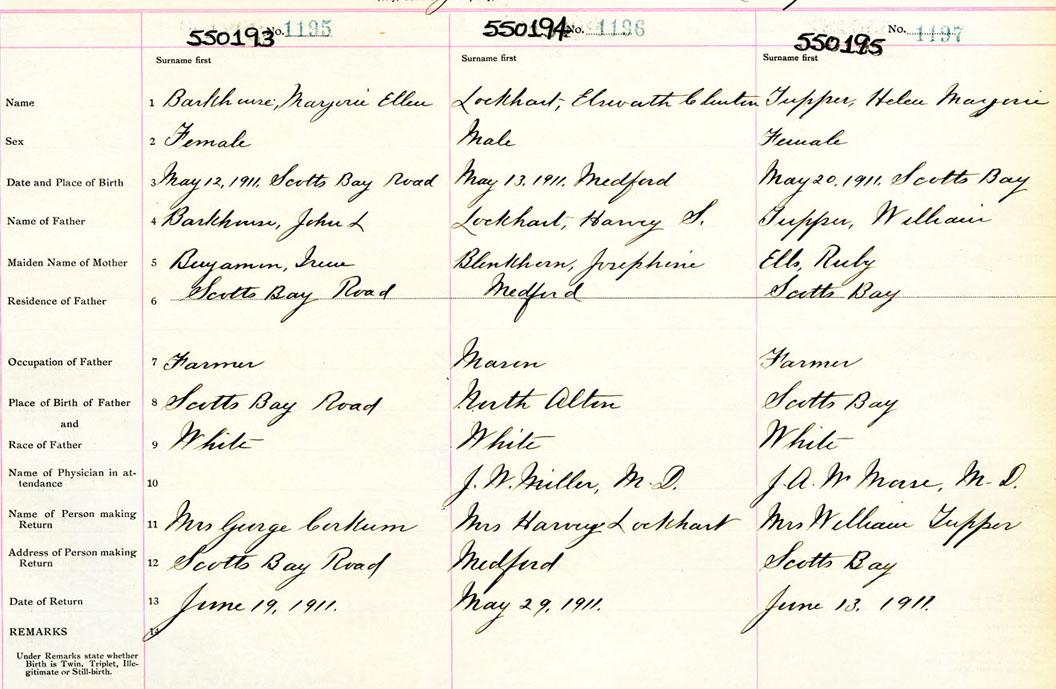 550193 No. 1195 550194 No. 1196 550195 No. 1197
Surname first Surname first Surname first
Name 1 Barkhouse, Marjorie Ellen Lockhart, Elsworth Clinton Tupper, Helen Marjorie
Sex 2 Female Male Female
Date and Place of Birth 3 May 12, 1911. Scotts Bay Road May 13, 1911. Medford May 20, 1911. Scotts Bay
Name of Father 4 Barkhouse, John L Lockhart, Harvey S. Tupper, William
Maiden Name of Mother 5 Benjamin, Irene Blenkhorn, Josephine Ells, Ruby
Residence of Father 6 Scotts Bay Road Medford Scotts Bay
Occupation of Father 7 Farmer Mason Farmer
Place of Birth of Father 8 Scotts Bay Road North Alton Scotts Bay
and
Race of Father 9 White White White
Name of Physician in at-
tendance 10 J. W. Miller, M.D. J. A. W. Morse, M.D.
Name of Person making
Return 11 Mrs George Corkum Mrs Harvey Lockhart Mrs William Tupper
Address of Person making
Return 12 Scotts Bay Road Medford Scotts Bay
Date of Return 13 June 19, 1911. May 29, 1911. June 13, 1911.
REMARKS 14
Under Remarks state whether
Birth is Twin, Triplet, Ille-
gitimate or Still-birth.